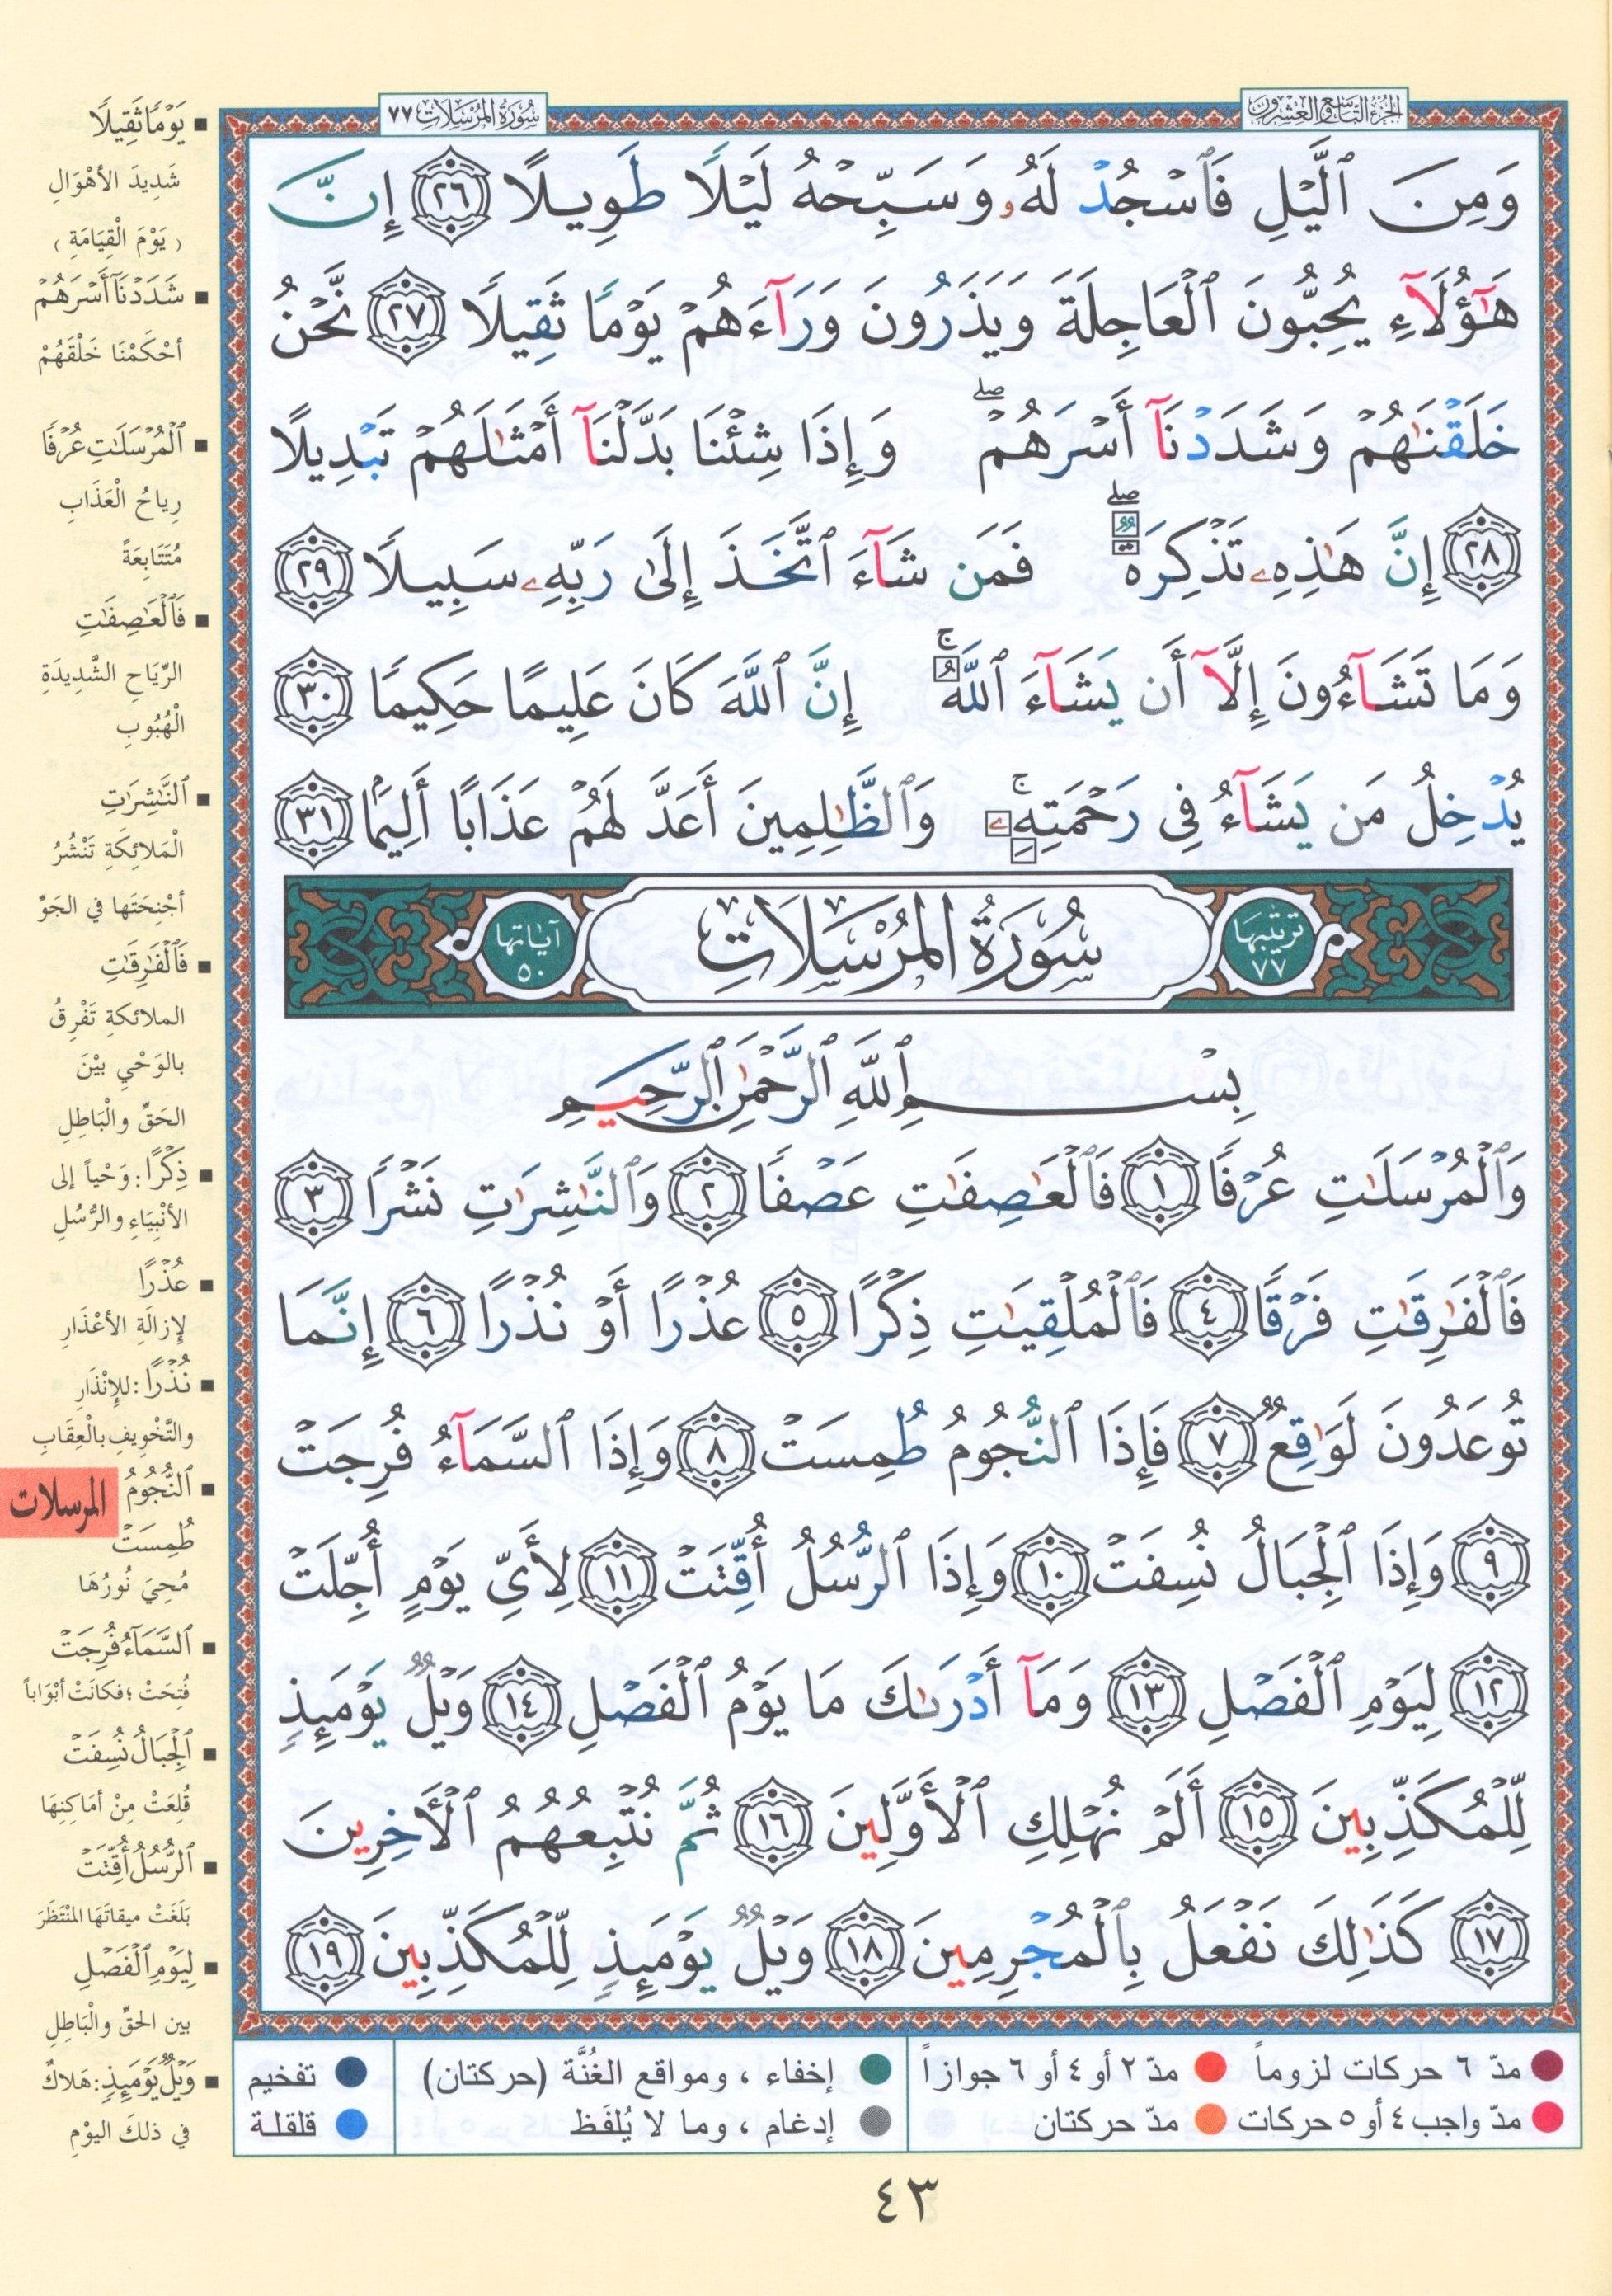 الجزء التاسع والعشرون
سورة المرسلات ٧٧
وَمِنَ ٱلَّيْلِ فَٱسْجُدْ لَهُۥ وَسَبِّحْهُ لَيْلًا طَوِيلًا ٢٦ إِنَّ
هَـٰٓؤُلَآءِ يُحِبُّونَ ٱلْعَاجِلَةَ وَيَذَرُونَ وَرَآءَهُمْ يَوْمًا ثَقِيلًا ٢٧ نَّحْنُ
خَلَقْنَـٰهُمْ وَشَدَدْنَآ أَسْرَهُمْ ۖ وَإِذَا شِئْنَا بَدَّلْنَآ أَمْثَـٰلَهُمْ تَبْدِيلًا
٢٨ إِنَّ هَـٰذِهِۦ تَذْكِرَةٌ ۖ فَمَن شَآءَ ٱتَّخَذَ إِلَىٰ رَبِّهِۦ سَبِيلًا ٢٩
وَمَا تَشَآءُونَ إِلَّآ أَن يَشَآءَ ٱللَّهُ ۚ إِنَّ ٱللَّهَ كَانَ عَلِيمًا حَكِيمًا ٣٠
يُدْخِلُ مَن يَشَآءُ فِى رَحْمَتِهِۦ ۚ وَٱلظَّـٰلِمِينَ أَعَدَّ لَهُمْ عَذَابًا أَلِيمًۢا ٣١
ترتيبها ٧٧
سُورَةُ المُرْسَلَاتِ
آياتها ٥٠
بِسْمِ ٱللَّهِ ٱلرَّحْمَـٰنِ ٱلرَّحِيمِ
وَٱلْمُرْسَلَـٰتِ عُرْفًا ١ فَٱلْعَـٰصِفَـٰتِ عَصْفًا ٢ وَٱلنَّـٰشِرَٰتِ نَشْرًا ٣
فَٱلْفَـٰرِقَـٰتِ فَرْقًا ٤ فَٱلْمُلْقِيَـٰتِ ذِكْرًا ٥ عُذْرًا أَوْ نُذْرًا ٦ إِنَّمَا
تُوعَدُونَ لَوَٰقِعٌ ٧ فَإِذَا ٱلنُّجُومُ طُمِسَتْ ٨ وَإِذَا ٱلسَّمَآءُ فُرِجَتْ
٩ وَإِذَا ٱلْجِبَالُ نُسِفَتْ ١٠ وَإِذَا ٱلرُّسُلُ أُقِّتَتْ ١١ لِأَىِّ يَوْمٍ أُجِّلَتْ
١٢ لِيَوْمِ ٱلْفَصْلِ ١٣ وَمَآ أَدْرَىٰكَ مَا يَوْمُ ٱلْفَصْلِ ١٤ وَيْلٌ يَوْمَئِذٍ
لِّلْمُكَذِّبِينَ ١٥ أَلَمْ نُهْلِكِ ٱلْأَوَّلِينَ ١٦ ثُمَّ نُتْبِعُهُمُ ٱلْـَٔاخِرِينَ
١٧ كَذَٰلِكَ نَفْعَلُ بِٱلْمُجْرِمِينَ ١٨ وَيْلٌ يَوْمَئِذٍ لِّلْمُكَذِّبِينَ ١٩
يَوْمًا ثَقِيلًا
شَدِيدَ الأهْوَالِ
( يَوْمَ الْقِيَامَةِ )
شَدَدْنَآ أَسْرَهُمْ
أحْكَمْنَا خَلْقَهُمْ
ٱلْمُرْسَلَـٰتِ عُرْفًا
رِياحُ الْعَذَابِ
مُتَتَابِعَةً
فَٱلْعَـٰصِفَـٰتِ
الرِّيَاحِ الشَّدِيدَةِ
الْهُبُوبِ
ٱلنَّـٰشِرَٰتِ
الْمَلائِكَةِ تَنْشُرُ
أجْنِحَتَها في الجَوِّ
فَٱلْفَـٰرِقَـٰتِ
الملائكةِ تَفْرِقُ
بالوَحْيِ بيْنَ
الحَقِّ والْبَاطِلِ
ذِكْرًا : وَحْياً إلى
الأنْبِيَاءِ والرُّسُلِ
عُذْرًا
لإزالَةِ الأعْذَارِ
نُذْرًا : للإنْذَارِ
والتَّخْوِيفِ بالْعِقَابِ
ٱلنُّجُومُ
المرسلات
طُمِسَتْ
مُحِيَ نُورُهَا
ٱلسَّمَآءُ فُرِجَتْ
فُتِحَتْ ؛ فكانَتْ أبْوَاباً
ٱلْجِبَالُ نُسِفَتْ
قُلِعَتْ مِنْ أمَاكِنِهَا
ٱلرُّسُلُ أُقِّتَتْ
بَلَغَتْ ميقاتَهَا المنْتَظَرَ
لِيَوْمِ ٱلْفَصْلِ
بين الحَقِّ والْبَاطِلِ
وَيْلٌ يَوْمَئِذٍ : هَلاكٌ
في ذلكَ اليوْمِ
مدّ ٦ حركات لزوماً مدّ ٢ أو ٤ أو ٦ جوازاً إخفاء ، ومواقع الغُنَّة (حركتان) تفخيم
مدّ واجب ٤ أو ٥ حركات مدّ حركتان إدغام ، وما لا يُلفَظ قلقلة
٤٣